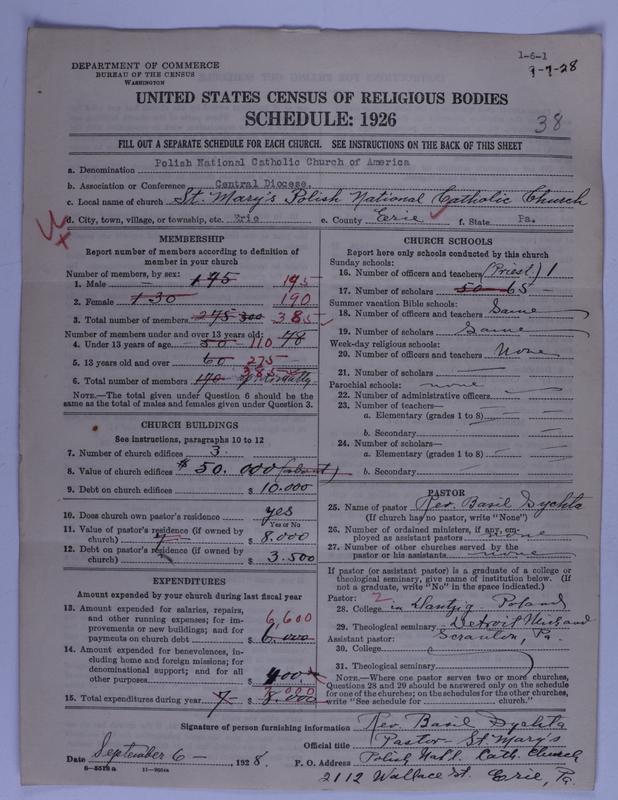 1-6-1
9-7-28
DEPARTMENT OF COMMERCE
BUREAU OF THE CENSUS
WASHINGTON
UNITED STATES CENSUS OF RELIGIOUS BODIES
SCHEDULE: 1926
38
FILL OUT A SEPARATE SCHEDULE FOR EACH CHURCH. SEE INSTRUCTIONS ON THE BACK OF THIS SHEET
a. Denomination Polish National Catholic Church of America
b. Association or Conference Central Diocese.
c. Local name of church St. Mary's Polish National Catholic Church
d. City, town, village, or township, etc. Erie e. County Erie f. State Pa.
MEMBERSHIP
Report number of members according to definition of
member in your church
Number of members, by sex:
1. Male 175 195
2. Female 130 190
3. Total number of members 275 300 385
Number of members under and over 13 years old:
4. Under 13 years of age 50 110 78
5. 13 years old and over 60 275
6. Total number of members 170 385
NOTE.—The total given under Question 6 should be
same as the total of males and females given under Question 3.
CHURCH BUILDINGS
See instructions, paragraphs 10 to 12
7. Number of church edifices 3.
8. Value of church edifices $50.000 (about)
9. Debt on church edifices $ 10.000
10. Does church own pastor's residence yes
Yes or No
11. Value of pastor's residence (if owned by
church) $ 8.000
12. Debt on pastor's residence (if owned by
church) $ 3.500
EXPENDITURES
Amount expended by your church during last fiscal year
13. Amount expended for salaries, repairs,
and other running expenses; for im-
provements or new buildings; and for
payments on church debt $ 6.000 6,600
14. Amount expended for benevolences, in-
cluding home and foreign missions; for
denominational support; and for all
other purposes $ 400.
15. Total expenditures during year $ 8.000 7,000
CHURCH SCHOOLS
Report here only schools conducted by this church
Sunday schools:
16. Number of officers and teachers (Priest) 1
17. Number of scholars 50 65
Summer vacation Bible schools:
18. Number of officers and teachers Same
19. Number of scholars Same
Week-day religious schools:
20. Number of officers and teachers None
21. Number of scholars
Parochial schools: none
22. Number of administrative officers
23. Number of teachers—
a. Elementary (grades 1 to 8)
b. Secondary
24. Number of scholars—
a. Elementary (grades 1 to 8)
b. Secondary
PASTOR
25. Name of pastor Rev. Basil Sychta
(If church has no pastor, write "None")
26. Number of ordained ministers, if any, em-
ployed as assistant pastors none
27. Number of other churches served by the
pastor or his assistants none
If pastor (or assistant pastor) is a graduate of a college or
theological seminary, give name of institution below. (If
not a graduate, write "No" in the space indicated.)
Pastor: 2
28. College in Dantzig Poland
29. Theological seminary Detroit Mich and
Assistant pastor: Scranton, Pa.
30. College
31. Theological seminary
NOTE.—Where one pastor serves two or more churches,
Questions 28 and 29 should be answered only on the schedule
for one of the churches; on the schedules for the other churches,
write "See schedule for church."
Signature of person furnishing information Rev. Basil Sychta
Official title Pastor St. Mary's
Polish Nat'l. Cath. Church
Date September 6 - 1928. P. O. Address 2112 Wallace St. Erie, Pa.